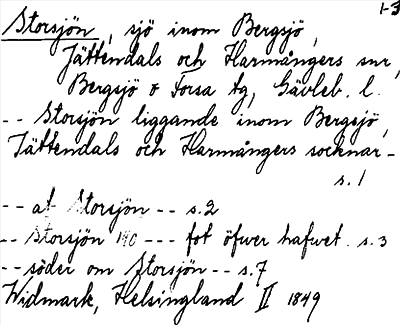 1-3
Storsjön, sjö inom Bergsjö,
Jättendals och Harmångers snr,
Bergsjö o Forsa tg, Gävleb. l.
-- Storsjön liggande inom Bergsjö,
Jättendals och Harmångers socknar -
s. 1
-- af Storsjön -- s. 2
-- Storsjön 190 --- fot öfwer hafwet s. 3
-- söder om Storsjön -- s. 7
Widmark, Helsingland II 1849